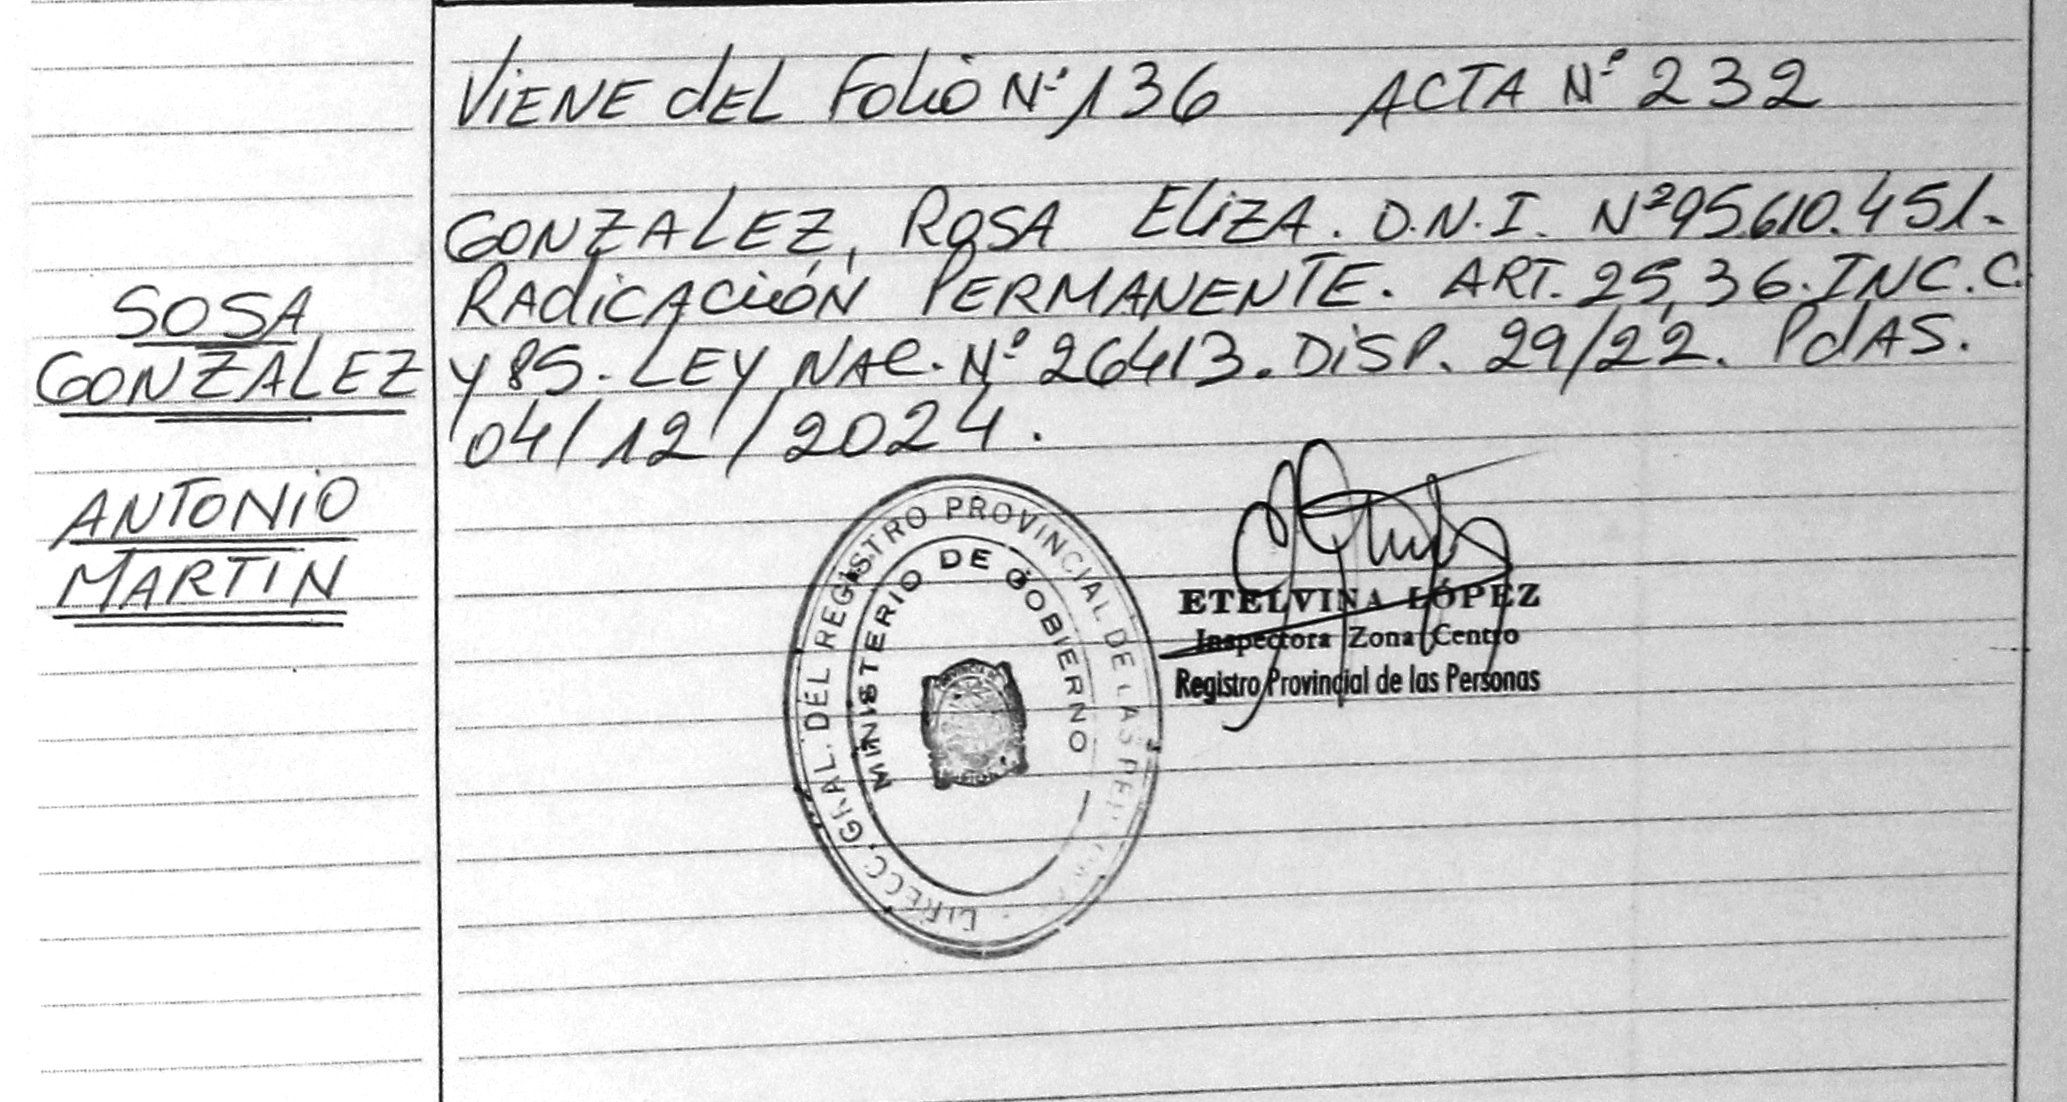 VIENE DEL FOLIO Nº 136 ACTA Nº 232
GONZALEZ, ROSA ELIZA. D.N.I. Nº 95.610.451.-
RADICACIÓN PERMANENTE. ART. 25, 36. INC. C.
Y 85. LEY NAC. Nº 26413. DISP. 29/22. PdAS.
04/12/2024.
SOSA
GONZALEZ
ANTONIO
MARTIN
DIRECC. GRAL. DEL REGISTRO PROVINCIAL DE LAS
MINISTERIO DE GOBIERNO
ETELVINA LÓPEZ
Inspectora Zona Centro
Registro Provincial de las Personas